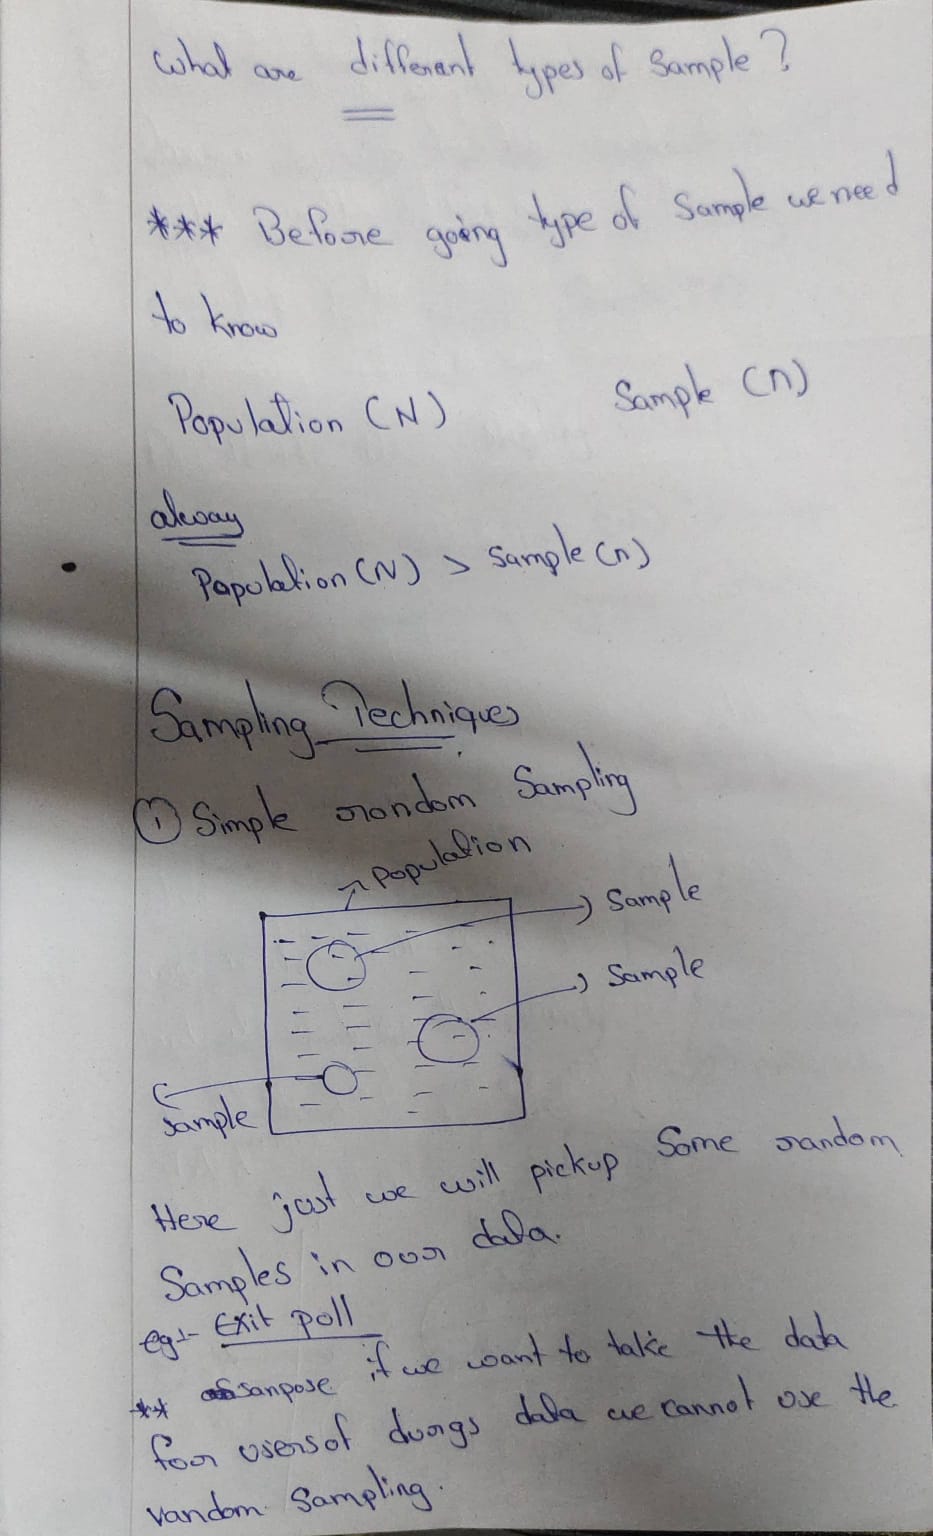 What are different types of Sample?
*** Before going type of Sample we need
to know
Population (N) Sample (n)
alway
Papulation (N) > Sample (n)
Sampling Techniques
① Simple random Sampling
Population
Sample
Sample
Sample
Here just we will pickup Some random
Samples in our data.
eg:- Exit poll
** sanpose if we want to take the data
foor users of durgs data we cannot use the
vandom Sampling.